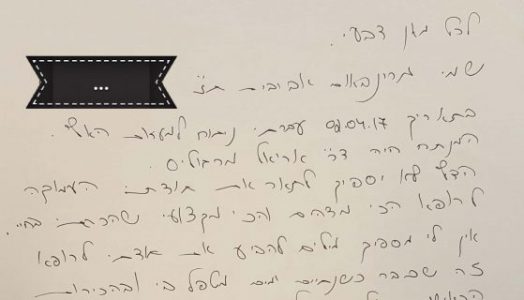 לכל מאן דבעי.
שמי גרינבאום אביבית ת.ז.
...
בתאריך 02.04.17 עברתי ניתוח למעקת האף.
המנתח היה דר׳ אריאל מרגוליס.
הדף לא יספיק לתאר את תודתי העמוקה
לרופא הכי מדהים והכי מקצועי שהכרתי בחיי.
אין לי מספיק מילים להביע את אותו לרופא
זה שכבר כשנתיים ימים מטפל בי ובהכירות